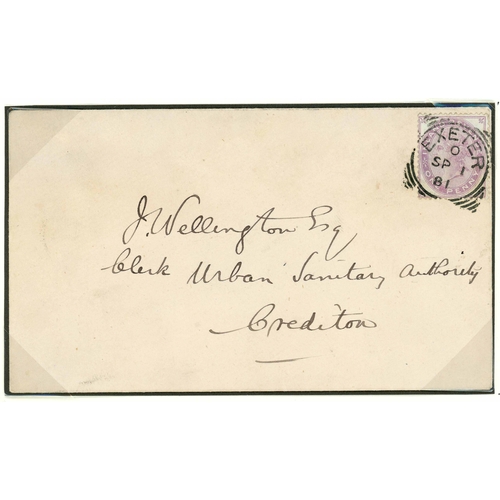 EXETER
O
SP 1
81
ONE PENNY
J. Wellington Esq
Clerk Urban Sanitary Authority
Crediton